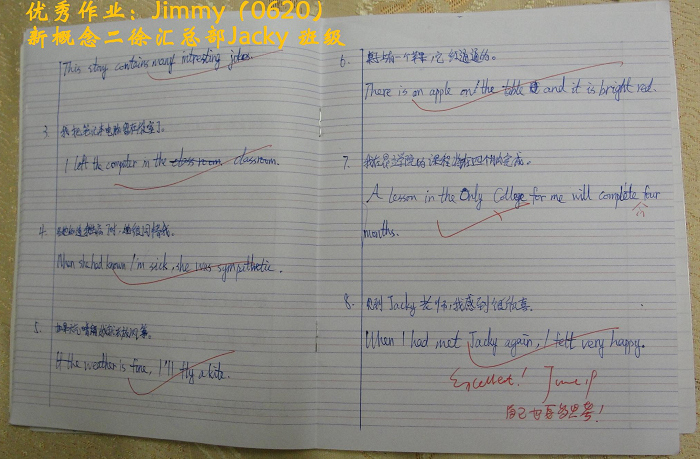 优秀作业：Jimmy（0620）
新概念二徐汇总部Jacky 班级
This story contains many intresting jokes.
3. 我把笔记本电脑留在教室了。
I left the computer in the class room. classroom.
4. 时，她很同情我。
When she had known I'm sick, she was sympathetic.
5. 如果
If the weather is fine, I'll fly a kite.
6. 桌上有一个苹果，它红通通的。
There is an apple on the table and it is bright red.
7. 我在学院的课程将在四个月内完成。
A Lesson in the Only College for me will complete four
months.
8. 见到Jacky老师，我感到很欣喜。
When I had met Jacky again, I felt very happy.
Excellent! June 19
自己要多思考！